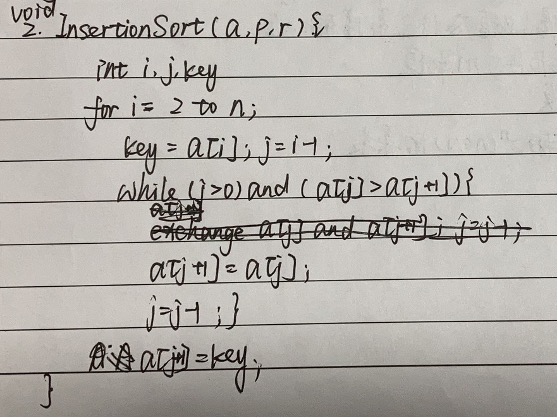 void
2. InsertionSort (a, p, r) {
int i, j, key
for i = 2 to n;
key = a[i]; j = i-1;
while (j>0) and (a[j] > a[j+1]) {
exchange a[j] and a[j+1]; j=j-1;
a[j+1] = a[j];
j=j-1; }
a[j+1] = key;
}